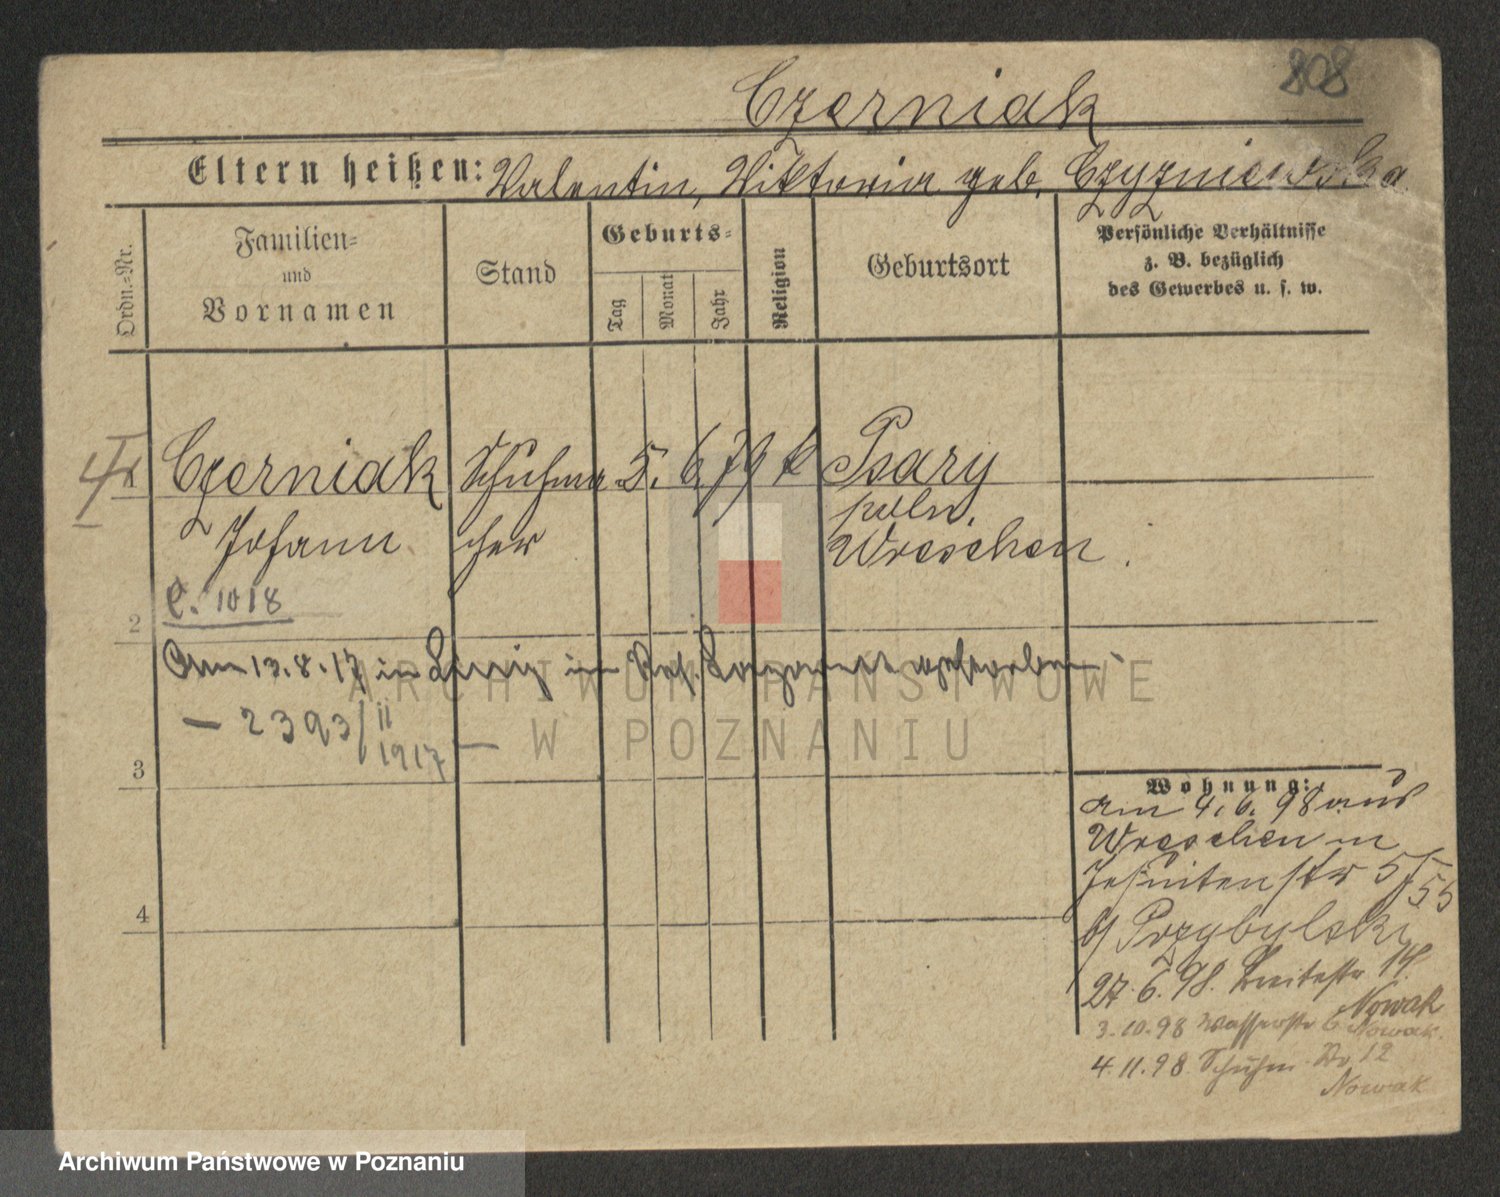 808
Czerniak
Eltern heißen: Valentin, Viktoria geb. Czyzniewska
Ordn.-Nr.
Familien-
und
Vornamen
Stand
Geburts-
Tag
Monat
Jahr
Religion
Geburtsort
Persönliche Verhältnisse
z. B. bezüglich
des Gewerbes u. s. w.
Czerniak Schuhma 5. 6. 79 k Psary
poln.
Johann cher Wreschen.
C. 1018
2
Am 13.8.17 in im Res. Lazarett gestorben
— 2393/II
1917 —
3
4
Wohnung:
am 4.6.98 aus
Wreschen in
Jesuitenstr 5
55
b/ Przybylski
27.6.98. Breitestr 14.
Nowak
3.10.98 Wasserstr 6 Nowak.
4.11.98. Schuhm. Str 12
Nowak
ARCHIWUM PAŃSTWOWE
W POZNANIU
Archiwum Państwowe w Poznaniu